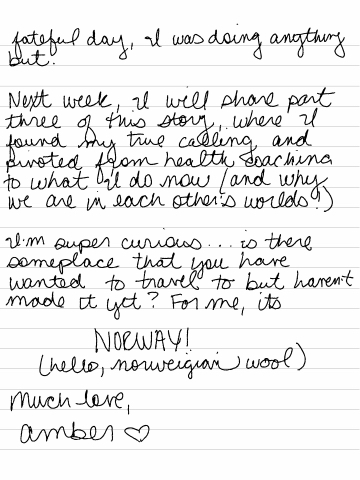 fateful day, I was doing anything
but.
Next week, I will share part
three of this story, where I
found my true calling and
pivoted from health coaching
to what I do now (and why
we are in each other's worlds!)
I'm super curious... is there
someplace that you have
wanted to travel to but haven't
made it yet? For me, its
NORWAY!
(hello, norweigian wool)
Much love,
amber ♡